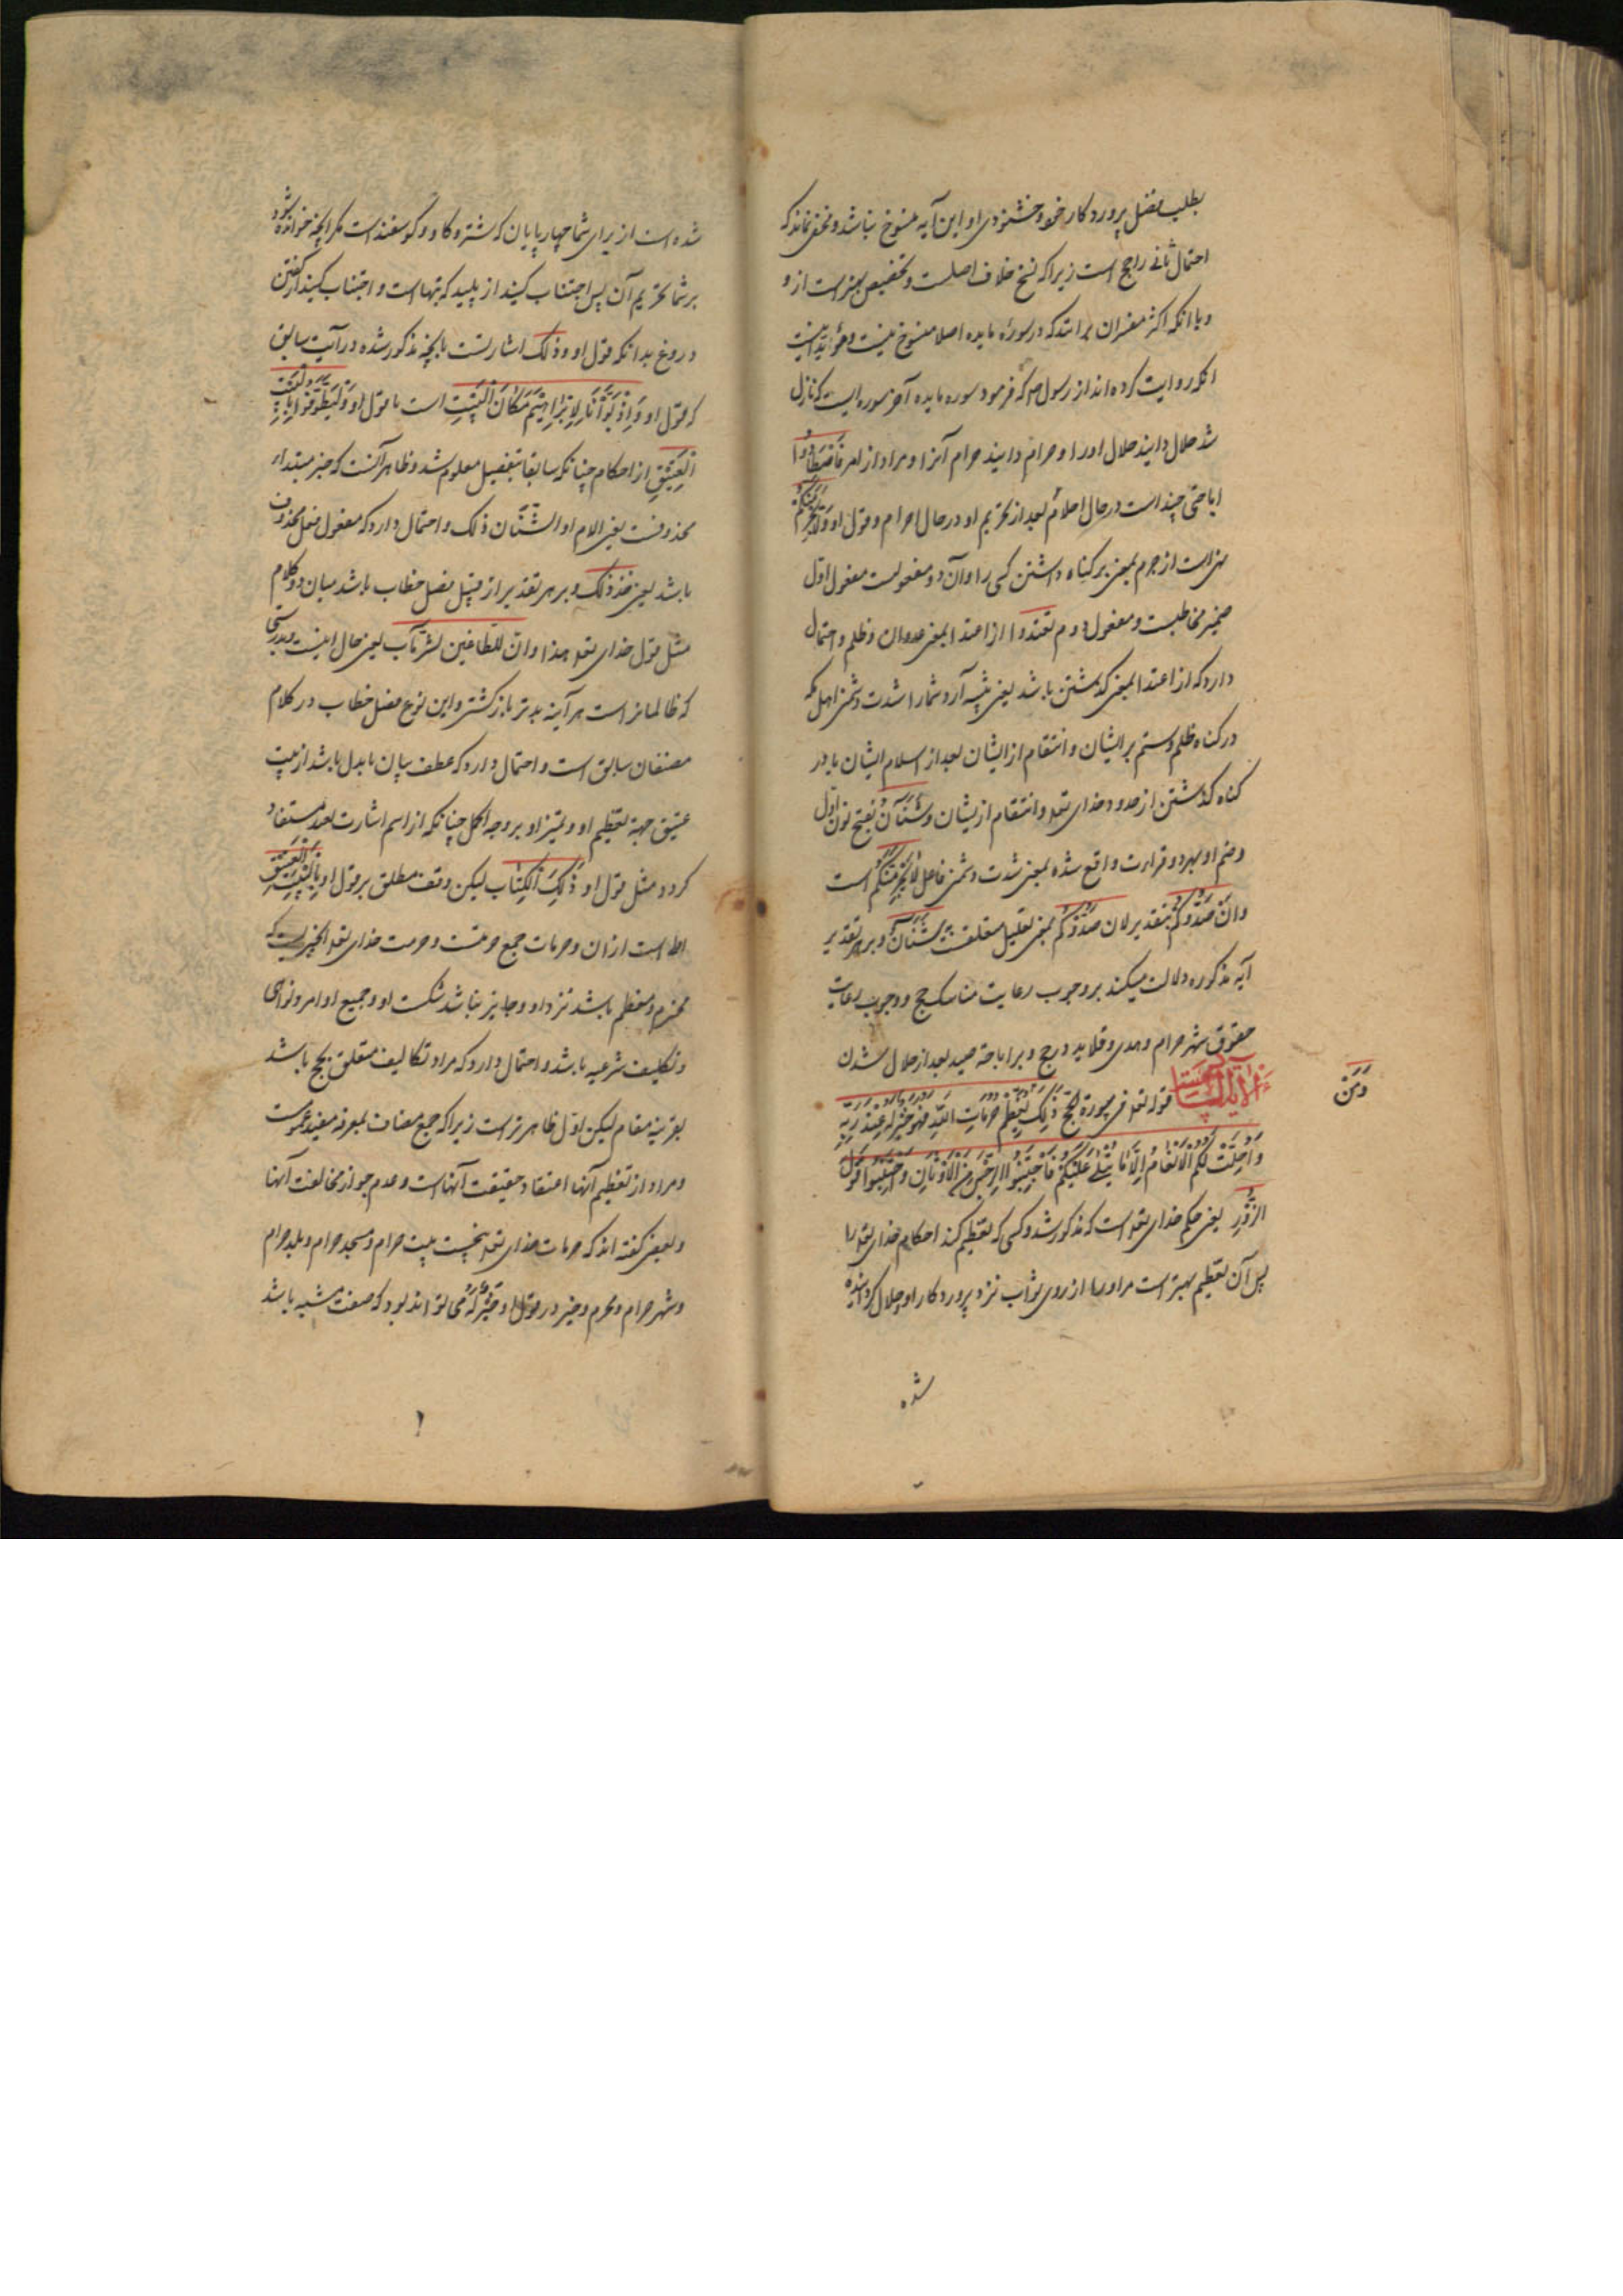 بطلب فضل پروردکار خود و خشنودی او این آیه منسوخ نباشد و مخفی نماند که
احتمال ثانی راجح است زیرا که نسخ خلاف اصلست و تخصیص بهتر است از و
و با انکه اکثر مفسران برانند که در سورهٔ مایده اصلا منسوخ نیست و مؤید اینست
انکه روایت کرده اند از رسول ص که فرمود سوره مایده آخر سوره ایست که نازل
شد حلال دانید حلال اورا و حرام دانید حرام آنرا و مراد از امر فَاصْطَادُوا
اباحتی چند است در حال احلال بعد از تحریم او در حال احرام و قول او وَلَا یَجْرِمَنَّکُمْ
نهی است از جرم بمعنی بر کناه داشتن کسی را و آن دو مفعولیست مفعول اوّل
ضمیر مخاطبست و مفعول دوم تعتدوا از اعتدا بمعنی عدوان و ظلم و احتمال
دارد که از اعتدا بمعنی کذشتن باشد یعنی نه آرد شما را شدت دشمنی اهل مکه
در کناه ظلم و ستم بر ایشان و انتقام از ایشان بعد از اسلام ایشان یا در
کناه کذشتن از حدود خدای تعه و انتقام از یشان و شَنَآنُ بفتح نون اوّل
و ضم او بهر دو قراءت واقع شده بمعنی شدت دشمنی فاعل لَا یَجْرِمَنَّکُمْ است
و اَنْ صَدُّوکُمْ بتقدیر لان صَدُّوکُمْ بمعنی تعلیل متعلق به شَنَآنُ و بر هر تقدیر
آیه مذکوره دلالت میکند بر وجوب رعایت مناسک حج و وجوب رعایت
حقوق شهر حرام و هدی و قلاید در حج و بر اباحة صید بعد از حلال شدن
الآیة قوله تعه فی سورة الحج ذٰلِکَ وَمَنْ یُعَظِّمْ حُرُمَاتِ اللهِ فَهُوَ خَیْرٌ لَهُ عِنْدَ رَبِّهِ
وَمَنْ
وَاُحِلَّتْ لَکُمُ الْاَنْعَامُ اِلَّا مَا یُتْلٰی عَلَیْکُمْ فَاجْتَنِبُوا الرِّجْسَ مِنَ الْاَوْثَانِ وَاجْتَنِبُوا قَوْلَ
الزُّورِ یعنی حکم خدای تعه است که مذکور شد و کسی که تعظیم کند احکام خدای تعه را
پس آن تعظیم بهتر است مر او را از روی ثواب نزد پروردکار او و حلال کردانیده
شده
شده است از برای شما چهارپایان که شتر و کاو و کوسفند است مکر انچه خوانده شود
بر شما تحریم آن پس اجتناب کنید از پلید که بتهاست و اجتناب کنید از کفتن
دروغ بدانکه قول او و ذلک اشارتست بانچه مذکور شده در آیت سابق
که قول او وَاِذْ بَوَّأْنَا لِاِبْرَاهِیمَ مَکَانَ الْبَیْتِ است تا قول او وَلْیَطَّوَّفُوا بِالْبَیْتِ
الْعَتِیقِ از احکام چنانکه سابقا بتفصیل معلوم شد و ظاهر آنست که خبر مبتداء
محذوفست یعنی الامر او الشّان ذلک و احتمال دارد که مفعول فعل محذوف
باشد یعنی خذ ذلک و بر هر تقدیر از قبیل فصل خطاب باشد میان دو کلام
مثل قول خدای تعه هذا وان للطاغین لشر مآب یعنی حال اینست و بدرستی
که ظالمانراست هر آینه بدتر بازکشتی و این نوع فصل خطاب در کلام
مصنفان سابق است و احتمال دارد که عطف بیان یا بدل باشد از بیت
عتیق جهة تعظیم او و تمیز او بر وجه اکمل چنانکه از اسم اشارت بعد مستفاد
کردد مثل قول او ذٰلِکَ الْکِتَابُ لیکن وقف مطلق بر قول او بِالْبَیْتِ الْعَتِیقِ
اظهر است از آن و حرمات جمع حرمتست و حرمت خدای تعه انچیزیست که
محترم و معظم باشد نزد او و جایز نباشد شکست او و جمیع اوامر و نواهی
و تکلیف شرعیه باشد و احتمال دارد که مراد تکالیف متعلق بحج باشد
بقرینه مقام لیکن اول ظاهرتر است زیرا که جمع مضاف بمعرفه مفید عمومست
و مراد از تعظیم آنها اعتقاد حقیقت آنهاست و عدم جواز مخالفت آنها
و بعضی کفته اند که حرمات خدای تعه پنجست بیت حرام و مسجد حرام و بلد حرام
و شهر حرام و محرم و خیر در قول او خَیْرٌ لَهُ می تواند بود که صفت مشبه باشد